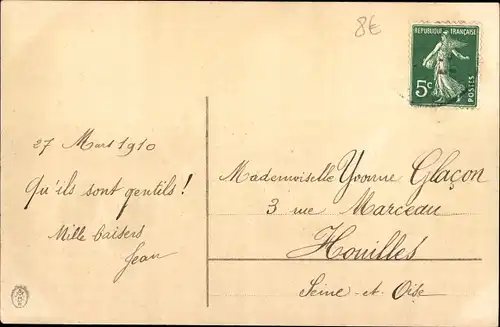 8€
REPUBLIQUE FRANÇAISE
5c
POSTES
27 Mars 1910
Qu'ils sont gentils !
Mille baisers
Jean
Mademoiselle Yvonne Glaçon
3 rue Marceau
Houilles
Seine-et-Oise